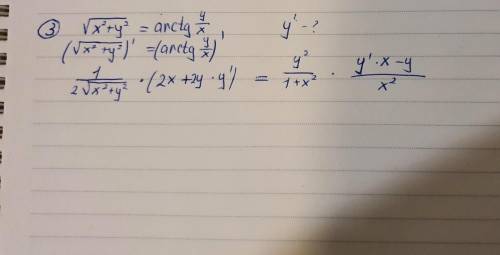 ③ √(x²+y²) = arctg y/x, y' - ?
(√(x²+y²))' = (arctg y/x)'
1/(2√(x²+y²)) · (2x+2y·y') = y²/(1+x²) · (y'·x-y)/x²